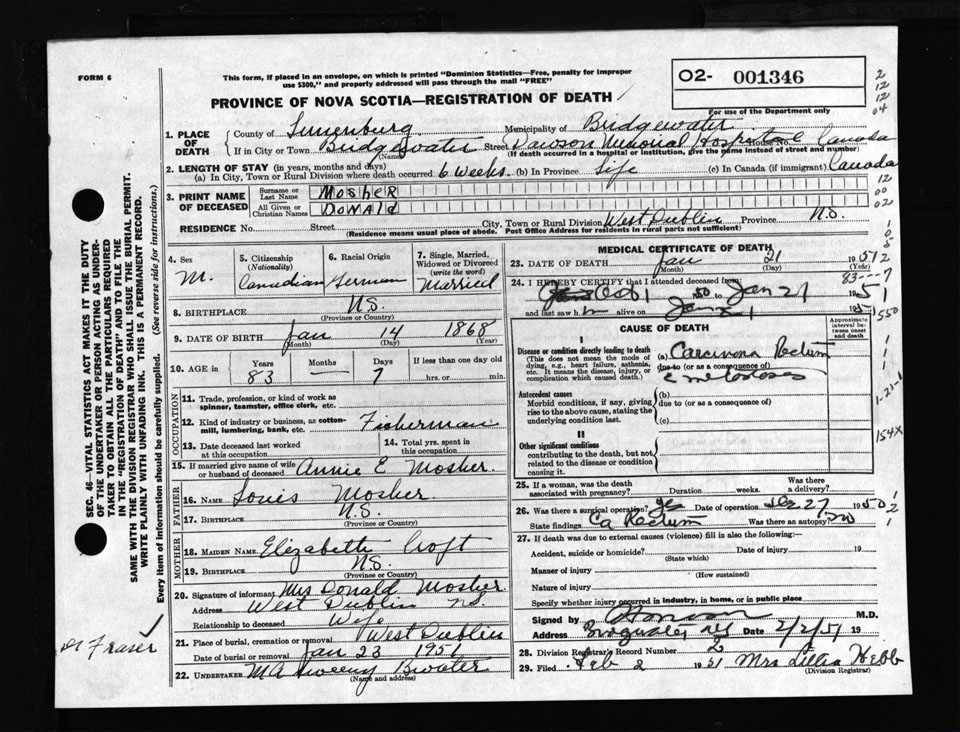 FORM 6
This form, if placed in an envelope, on which is printed "Dominion Statistics—Free, penalty for improper
use $300," and properly addressed will pass through the mail "FREE"
O2- 001346
For use of the Department only
PROVINCE OF NOVA SCOTIA—REGISTRATION OF DEATH
1. PLACE OF DEATH
County of Lunenburg Municipality of Bridgewater
If in City or Town Bridgewater Street Dawson Memorial Hospital House No. Canada
(Name) (If death occurred in a hospital or institution, give the name instead of street and number)
2. LENGTH OF STAY (in years, months and days)
(a) In City, Town or Rural Division where death occurred 6 weeks. (b) In Province Life (c) In Canada (if immigrant) Canada
3. PRINT NAME OF DECEASED
Surname or Last Name MOSHER
All Given or Christian Names DONALD
RESIDENCE No. Street City, Town or Rural Division West Dublin Province N.S.
(Residence means usual place of abode. Post Office Address for residents in rural parts not sufficient)
4. Sex M.
5. Citizenship (Nationality) Canadian
6. Racial Origin German
7. Single, Married, Widowed or Divorced (write the word) Married
8. BIRTHPLACE N.S.
(Province or Country)
9. DATE OF BIRTH Jan 14 1868
(Month) (Day) (Year)
10. AGE in Years 83 Months — Days 7 If less than one day old hrs. or min.
OCCUPATION
11. Trade, profession, or kind of work as spinner, teamster, office clerk, etc.
12. Kind of industry or business, as cotton-mill, lumbering, bank, etc. Fisherman
13. Date deceased last worked at this occupation
14. Total yrs. spent in this occupation
15. If married give name of wife or husband of deceased Annie E Mosher.
FATHER
16. Name Louis Mosher
17. BIRTHPLACE N.S.
(Province or Country)
MOTHER
18. MAIDEN NAME Elizabeth Croft
19. BIRTHPLACE N.S.
(Province or Country)
20. Signature of informant Mrs Donald Mosher.
Address West Dublin N.S.
Relationship to deceased Wife
21. Place of burial, cremation or removal West Dublin
Date of burial or removal Jan 23 1951
22. Undertaker M A Sweeny Bwater
(Name and Address)
MEDICAL CERTIFICATE OF DEATH
23. DATE OF DEATH Jan 21 1951
(Month) (Day) (Year)
24. I HEREBY CERTIFY that I attended deceased from:
Oct 1 1950 to Jan 21 1951
and last saw h m alive on Jan 21 1951
CAUSE OF DEATH
Approximate interval between onset and death
I
Disease or condition directly leading to death
(This does not mean the mode of dying, e.g., heart failure, asthenia, etc. It means the disease, injury, or complication which caused death.)
(a) Carcinoma Rectum
due to (or as a consequence of)
c metastases
Antecedent causes
Morbid conditions, if any, giving rise to the above cause, stating the underlying condition last.
(b)
due to (or as a consequence of)
(c)
II
Other significant conditions
contributing to the death, but not related to the disease or condition causing it.
25. If a woman, was the death associated with pregnancy? Duration weeks. Was there a delivery?
26. Was there a surgical operation? yes Date of operation Dec 27 1950
State findings Ca Rectum Was there an autopsy? no
27. If death was due to external causes (violence) fill in also the following:—
Accident, suicide or homicide? Date of injury 19
(State which)
Manner of injury
(How sustained)
Nature of injury
Specify whether injury occurred in industry, in home, or in public place
Signed by M.D.
Address Date 2/2/51 19
28. Division Registrar's Record Number 2
29. Filed Feb 2 1951 Mrs Lillia Hebb
(Division Registrar)
SEC. 46—VITAL STATISTICS ACT MAKES IT THE DUTY
OF THE UNDERTAKER OR PERSON ACTING AS UNDER-
TAKER TO OBTAIN ALL THE PARTICULARS REQUIRED
IN THE "REGISTRATION OF DEATH" AND TO FILE THE
SAME WITH THE DIVISION REGISTRAR WHO SHALL ISSUE THE BURIAL PERMIT.
WRITE PLAINLY WITH UNFADING INK. THIS IS A PERMANENT RECORD.
Every item of information should be carefully supplied. (See reverse side for instructions.)
Dr Fraser
2
12
12
04
12
00
02
1
0
5
2
83---7
1550
1
1
1
1-21-1
154X
1
2
1